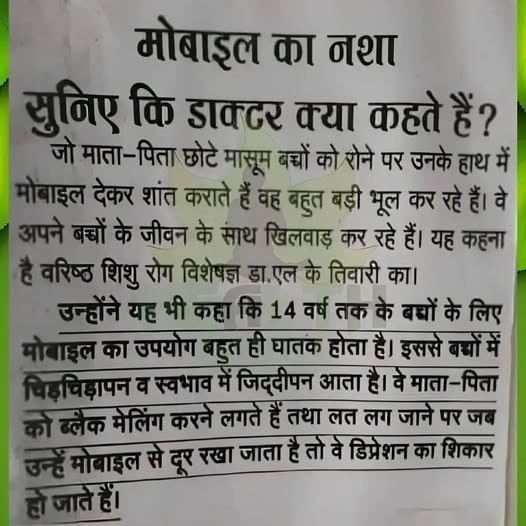 मोबाइल का नशा
सुनिए कि डाक्टर क्या कहते हैं?
जो माता-पिता छोटे मासूम बच्चों को रोने पर उनके हाथ में
मोबाइल देकर शांत कराते हैं वह बहुत बड़ी भूल कर रहे हैं। वे
अपने बच्चों के जीवन के साथ खिलवाड़ कर रहे हैं। यह कहना
है वरिष्ठ शिशु रोग विशेषज्ञ डा.एल के तिवारी का।
उन्होंने यह भी कहा कि 14 वर्ष तक के बच्चों के लिए
मोबाइल का उपयोग बहुत ही घातक होता है। इससे बच्चों में
चिड़चिड़ापन व स्वभाव में जिद्दीपन आता है। वे माता-पिता
को ब्लैक मेलिंग करने लगते हैं तथा लत लग जाने पर जब
उन्हें मोबाइल से दूर रखा जाता है तो वे डिप्रेशन का शिकार
हो जाते हैं।